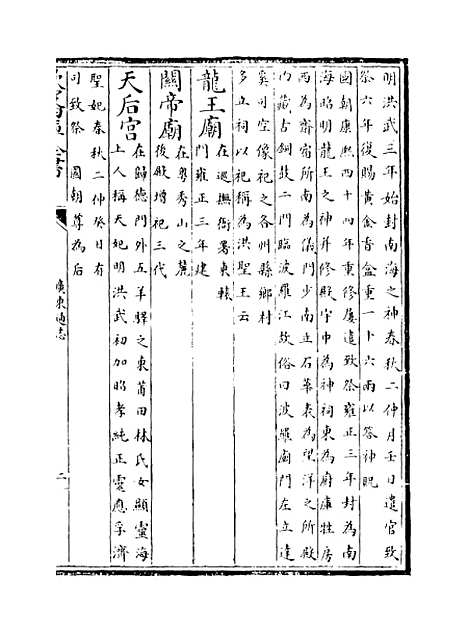 明洪武三年始封南海之神春秋二仲月壬日遣官致
祭六年復賜黄金香盒重一十六兩以答神貺
國朝康熙四十四年重修屢遣致祭雍正三年封為南
海昭明龍王之神并修殿宇中為神祠東為府庫牲房
西為齋宿所南為儀門少南立石華表為望洋之所殿
内藏古銅鼓二門臨波羅江故俗曰波羅廟門左立達
奚司空像祀之各州縣鄉村
多立祠以祀稱為洪聖王云
龍王廟
在巡撫衙署東轅
門雍正三年建
關帝廟
在粤秀山之麓
後殿增祀三代
天后宫
在歸德門外五羊驛之東莆田林氏女顯靈海
上人稱天妃明洪武初加昭孝純正靈應孚濟
聖妃春秋二仲癸日有
司致祭 國朝尊為后
廣東通志
二